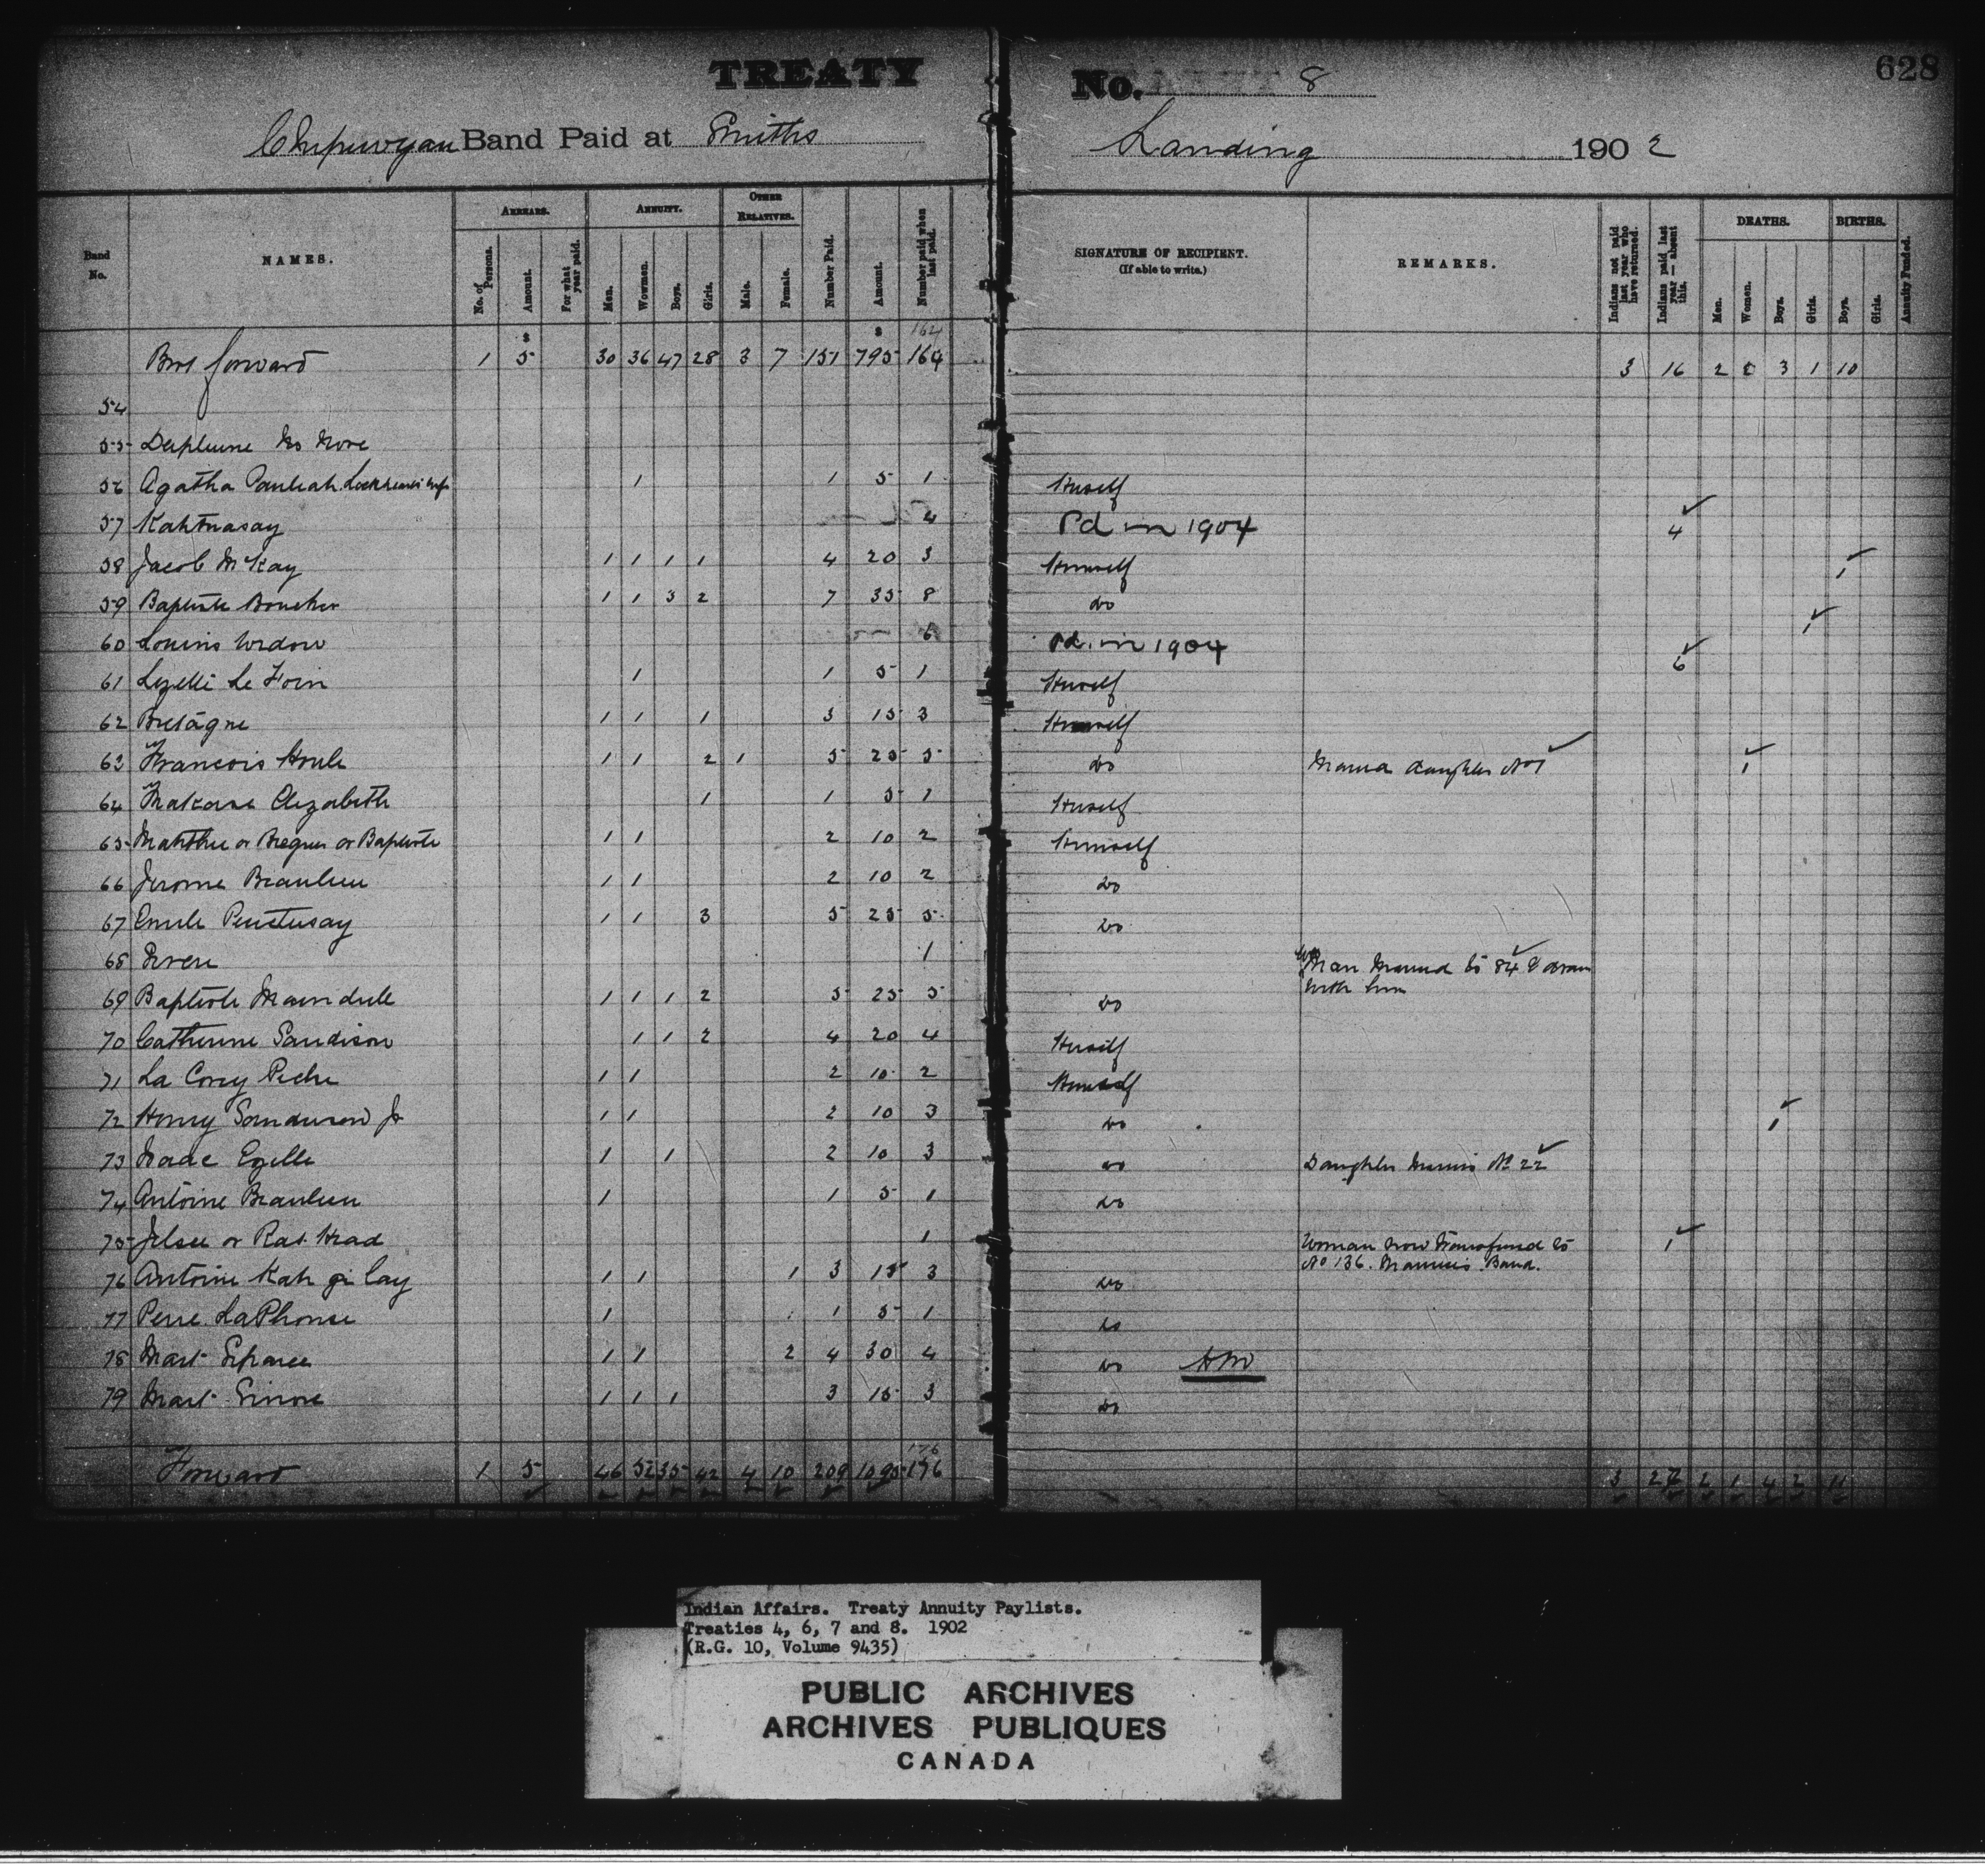 TREATY No. 8
628
Chipewyan Band Paid at Smiths Landing 1902
Band No.
NAMES.
ARREARS.
No. of Persons.
Amount.
For what year paid.
ANNUITY.
Men.
Women.
Boys.
Girls.
OTHER RELATIVES.
Male.
Female.
Number Paid.
Amount.
Number paid when last paid.
SIGNATURE OF RECIPIENT.
(If able to write.)
REMARKS.
Indians not paid last year who have returned.
Indians paid last year — absent this.
DEATHS.
Men.
Women.
Boys.
Girls.
BIRTHS.
Boys.
Girls.
Annuity Funded.
$ $ 164
Brot forward 1 5 30 36 47 28 3 7 151 795 164 3 16 2 3 1 10
54
55 No More
56 Agatha 1 1 5 1 Herself
57 Kahtnasay 4 Pd in 1904 4
58 Jacob McKay 1 1 1 1 4 20 3 Himself 1
59 Baptiste Boucher 1 1 3 2 7 35 8 do 1
60 Widow 6 Pd. in 1904 6
61 1 1 5 1 Herself
62 Bretagne 1 1 1 3 15 3 Himself
63 Francois Houle 1 1 2 1 5 25 5 do daughter No 1 1
64 Elizabeth 1 1 5 1 Herself
65 or or Baptiste 1 1 2 10 2 Himself
66 Jerome Beaulieu 1 1 2 10 2 do
67 Emile 1 1 3 5 25 5 do
68 1 to 84 & drawn with him
69 Baptiste 1 1 1 2 5 25 5 do
70 Catherine Sandison 1 1 2 4 20 4 Herself
71 La 1 1 2 10 2 Himself
72 Henry Jr 1 1 2 10 3 do 1
73 Isaac Ezelle 1 1 2 10 3 do Daughter No 22
74 Antoine Beaulieu 1 1 5 1 do
75 or Rat Head 1 Woman now Transferred to No 136. Band. 1
76 Antoine Kah 1 1 1 3 15 3 do
77 LaPhonse 1 1 5 1 do
78 1 1 2 4 30 4 do
79 1 1 1 3 15 3 do
176
Forward 1 5 46 52 55 42 4 10 209 1095 176 3 27 2 1 4 2 11
Indian Affairs. Treaty Annuity Paylists.
Treaties 4, 6, 7 and 8. 1902
(R.G. 10, Volume 9435)
PUBLIC ARCHIVES
ARCHIVES PUBLIQUES
CANADA